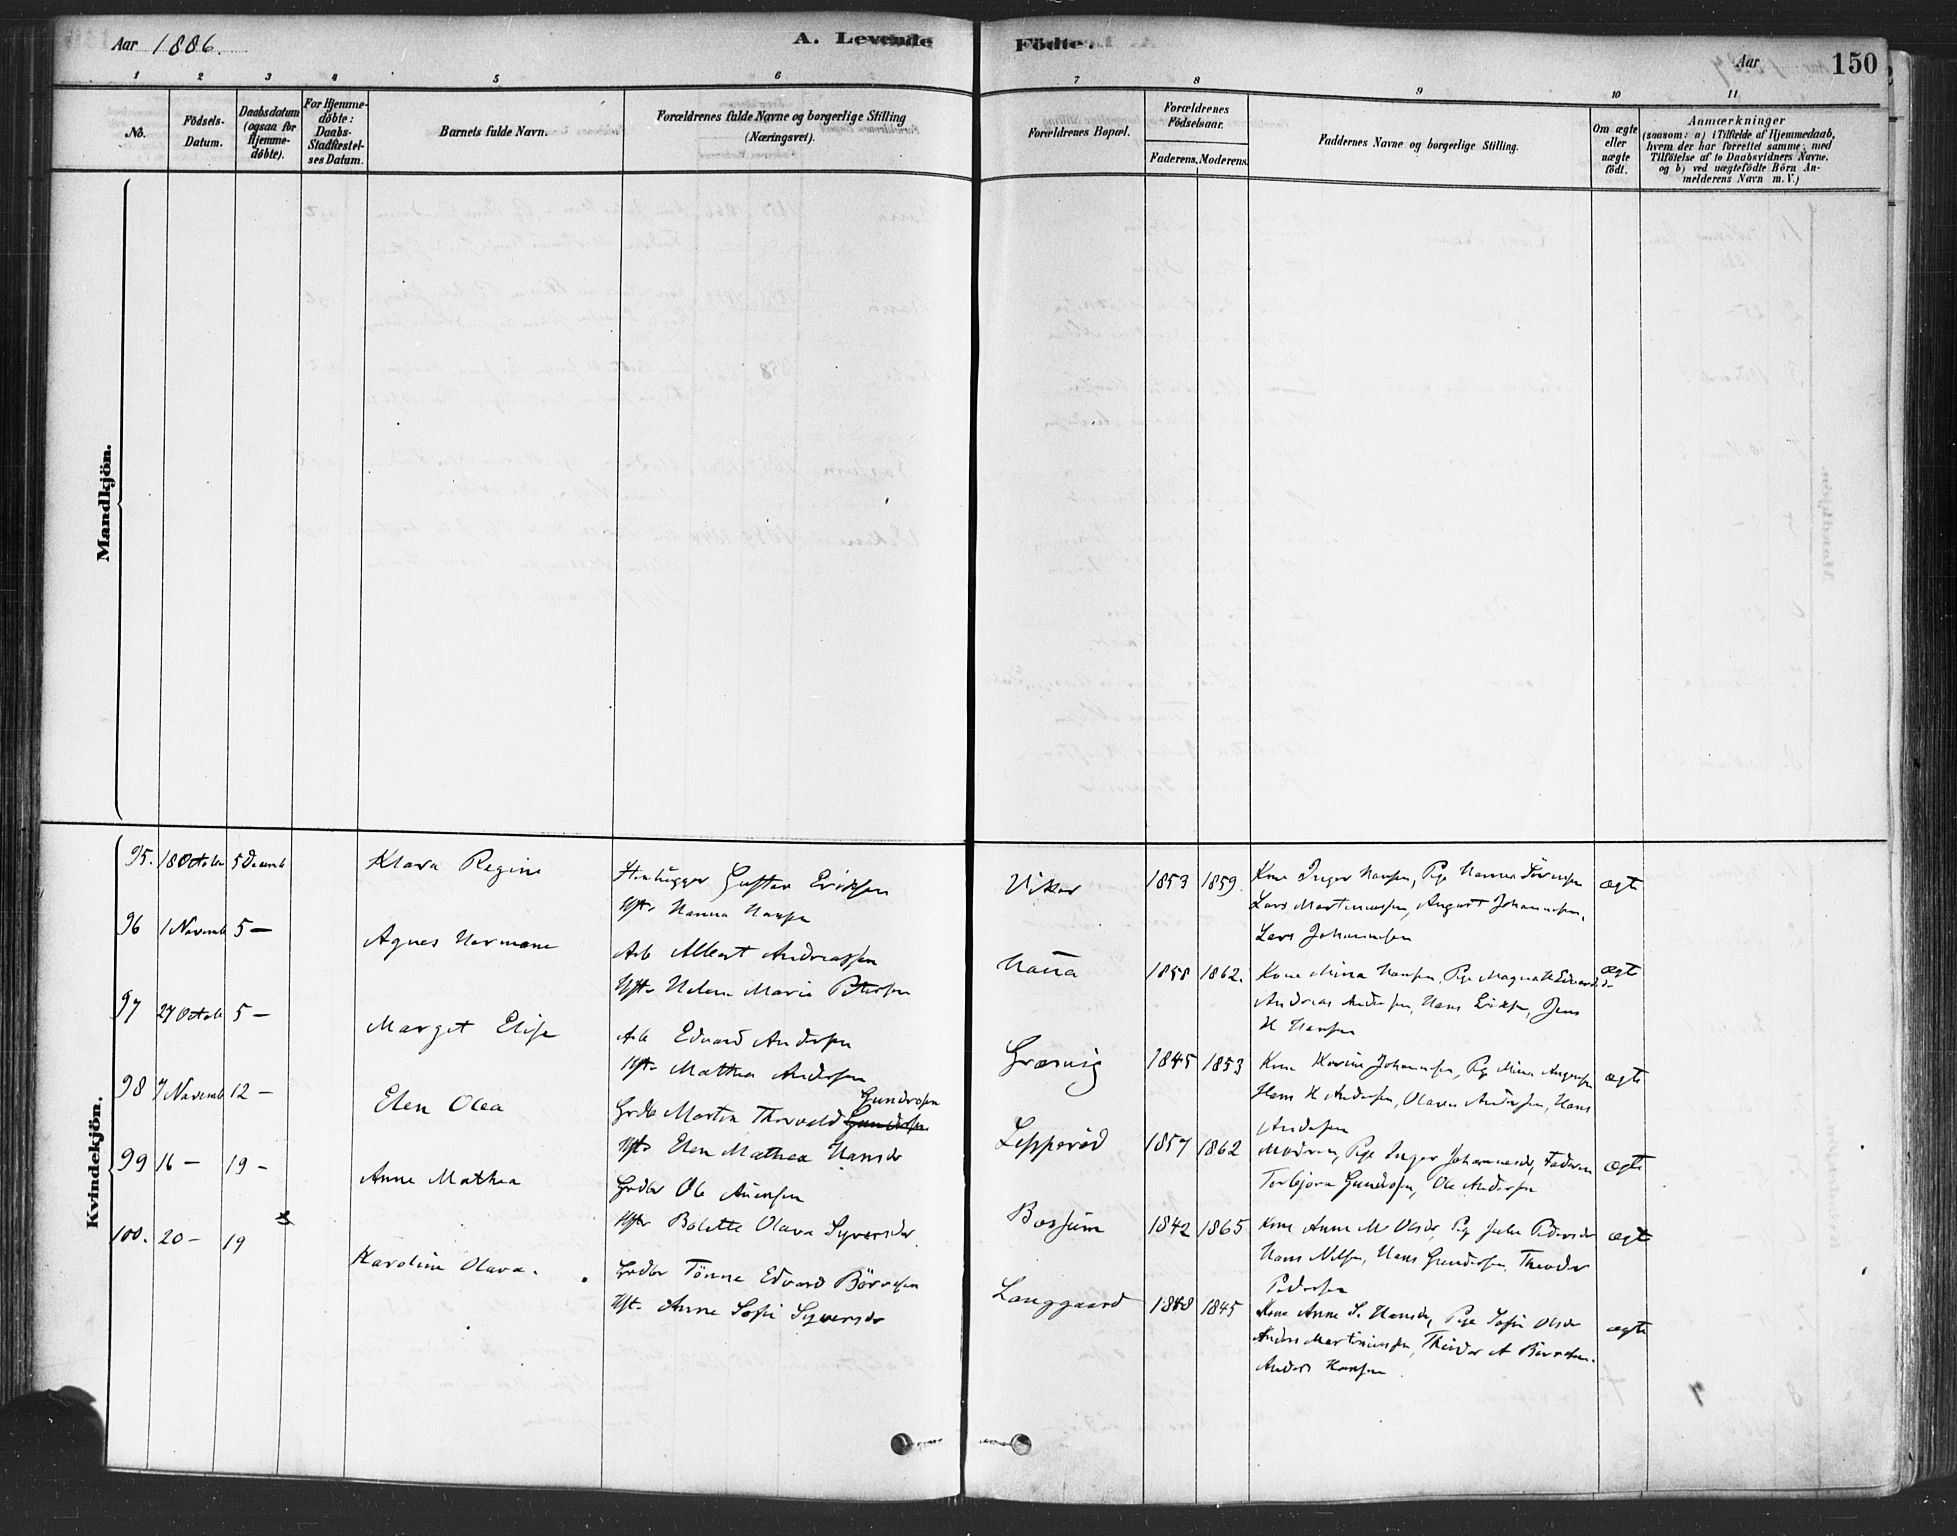 Aar 1886.
A. Levende
Födte.
Aar
150
1 2 3 4 5 6 7 8 9 10 11
Nô.
Födsels-
Datum.
Daabsdatum
(ogsaa for
Hjemme-
döbte).
For Hjemme-
döbte:
Daabs-
Stadfæstel-
ses Datum.
Barnets fulde Navn.
Forældrenes fulde Navne og borgerlige Stilling
(Næringsvei).
Forældrenes Bopæl.
Forældrenes
Födselsaar.
Faderens. Moderens.
Faddernes Navne og borgerlige Stilling.
Om ægte
eller
uægte
födt.
Anmærkninger
(saasom: a) i Tilfælde af Hjemmedaab,
hvem der har forrettet samme, med
Tilföielse af to Daabsvidners Navne.
og b) ved uægtefödte Börn An-
melderens Navn m. V.)
Mandkjön.
Kvindekjön.
95. 18 Octobr 5 Decemb Klara Regine
Stenhugger Gustav Eriksen
Hst. Hanna Hansen
Viker 1853 1859.
Kone Inger Hansen, Pige Hanna Sörensen
Lars Martinussen, August Johannesen,
Lars Johannesen
ægte
96 1 Novemb 5 — Agnes Hermane
Arb Albert Andreassen
Hst. Helene Marie Petersen
Hauna 1858 1862.
Kone Mina Hansen, Pige Magnhild Edvardsdr
Andreas Andersen, Hans Eriksen, Jens
H Hansen
ægte
97 27 Octob 5 — Margit Elise
Arb Edvard Andersen
Hst. Mathea Andersen
Græsvig 1845 1853
Kone Karine Johannesen, Pig Mina Augensen
Hans H Andersen, Olaves Andersen, Hans
Andersen
ægte
98 7 Novemb 12 — Elen Olea
Gundersen
Grdbr Martin Thorvald Gundersen
Hst. Elen Mathea Hansdr
Lepperöd 1857 1862
Moderen, Pige Inger Johannesdr, Faderen
Torbjörn Gundersen, Ole Andersen
ægte
99 16 — 19 — Anne Mathea
Grdbr Ole Auensen
Hst. Bolette Olava Syversdr
Bossum 1842 1865
Kone Anne M Olsdr, Pig Julie Pedersdr
Hans Nilsen, Hans Gundersen, Theodor
Pedersen
ægte
100. 20 — 19 Karoline Olava.
Grdbr Tönne Edvard Börresen
Hst. Anne Sofie Syversdr
Langgaard 1848 1845
Kone Anne S. Hansdr, Pige Sofie Olsdr
Anders Martinussen, Theodor A Börresen.
Anders Hansen.
ægte